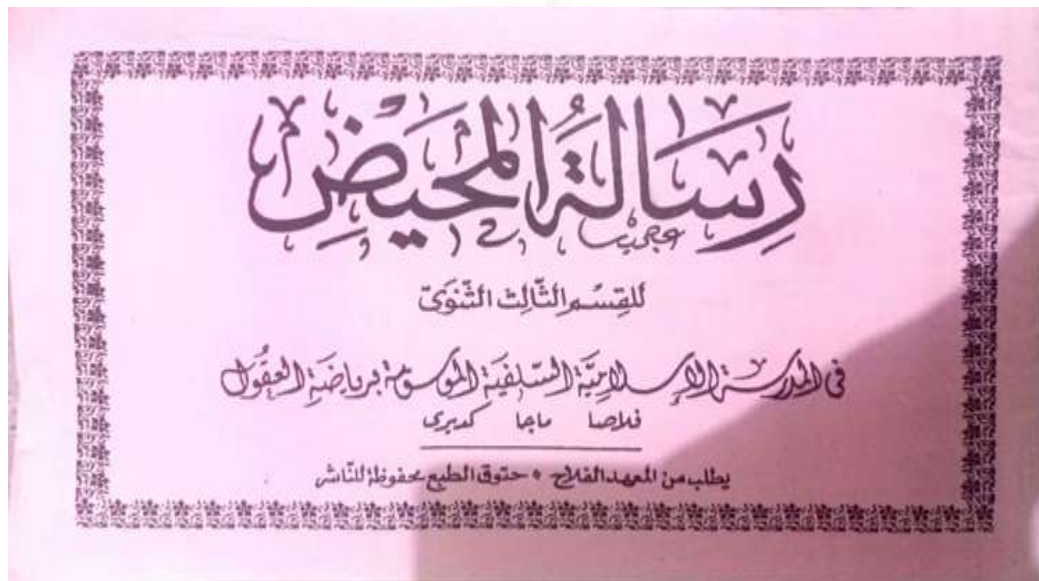 رِسَالَةُ الْمَحِيْضِ
لِلقِسْمِ الثَّالِثِ الثَّنَوِيّ
فى المدرسة الإسلامِيَّة السّلفِيَّة الموسومة برياضَةِ العقُول
فلاصا ماجا كديرى
يطلب من المعهد الفلاح * حتوق الطبع محفوظة للنّاشر